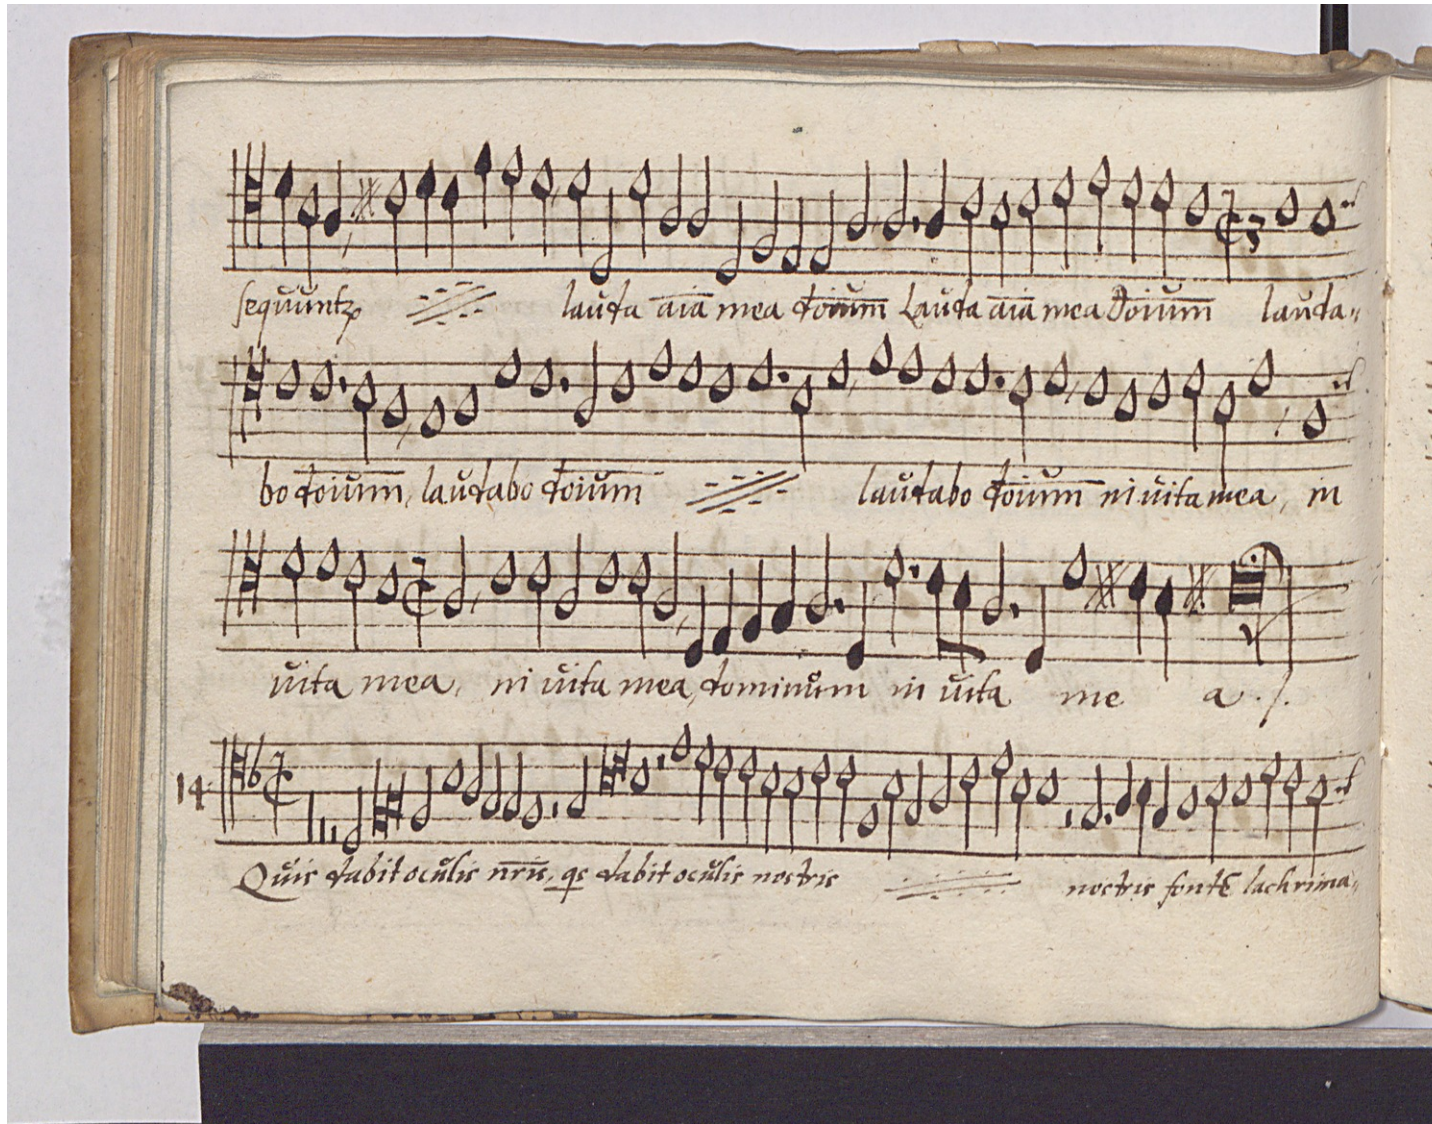 sequuntur lauda aīa mea doīum Lauda aīa mea Doīum lauda„
bo doīum, laudabo doīum laudabo doīum in uita mea, in
uita mea, in uita mea, dominum in uita me a ./.
14 Quis dabit oculis nr̄is, qs dabit oculis nostris nostris fontē lachrima„